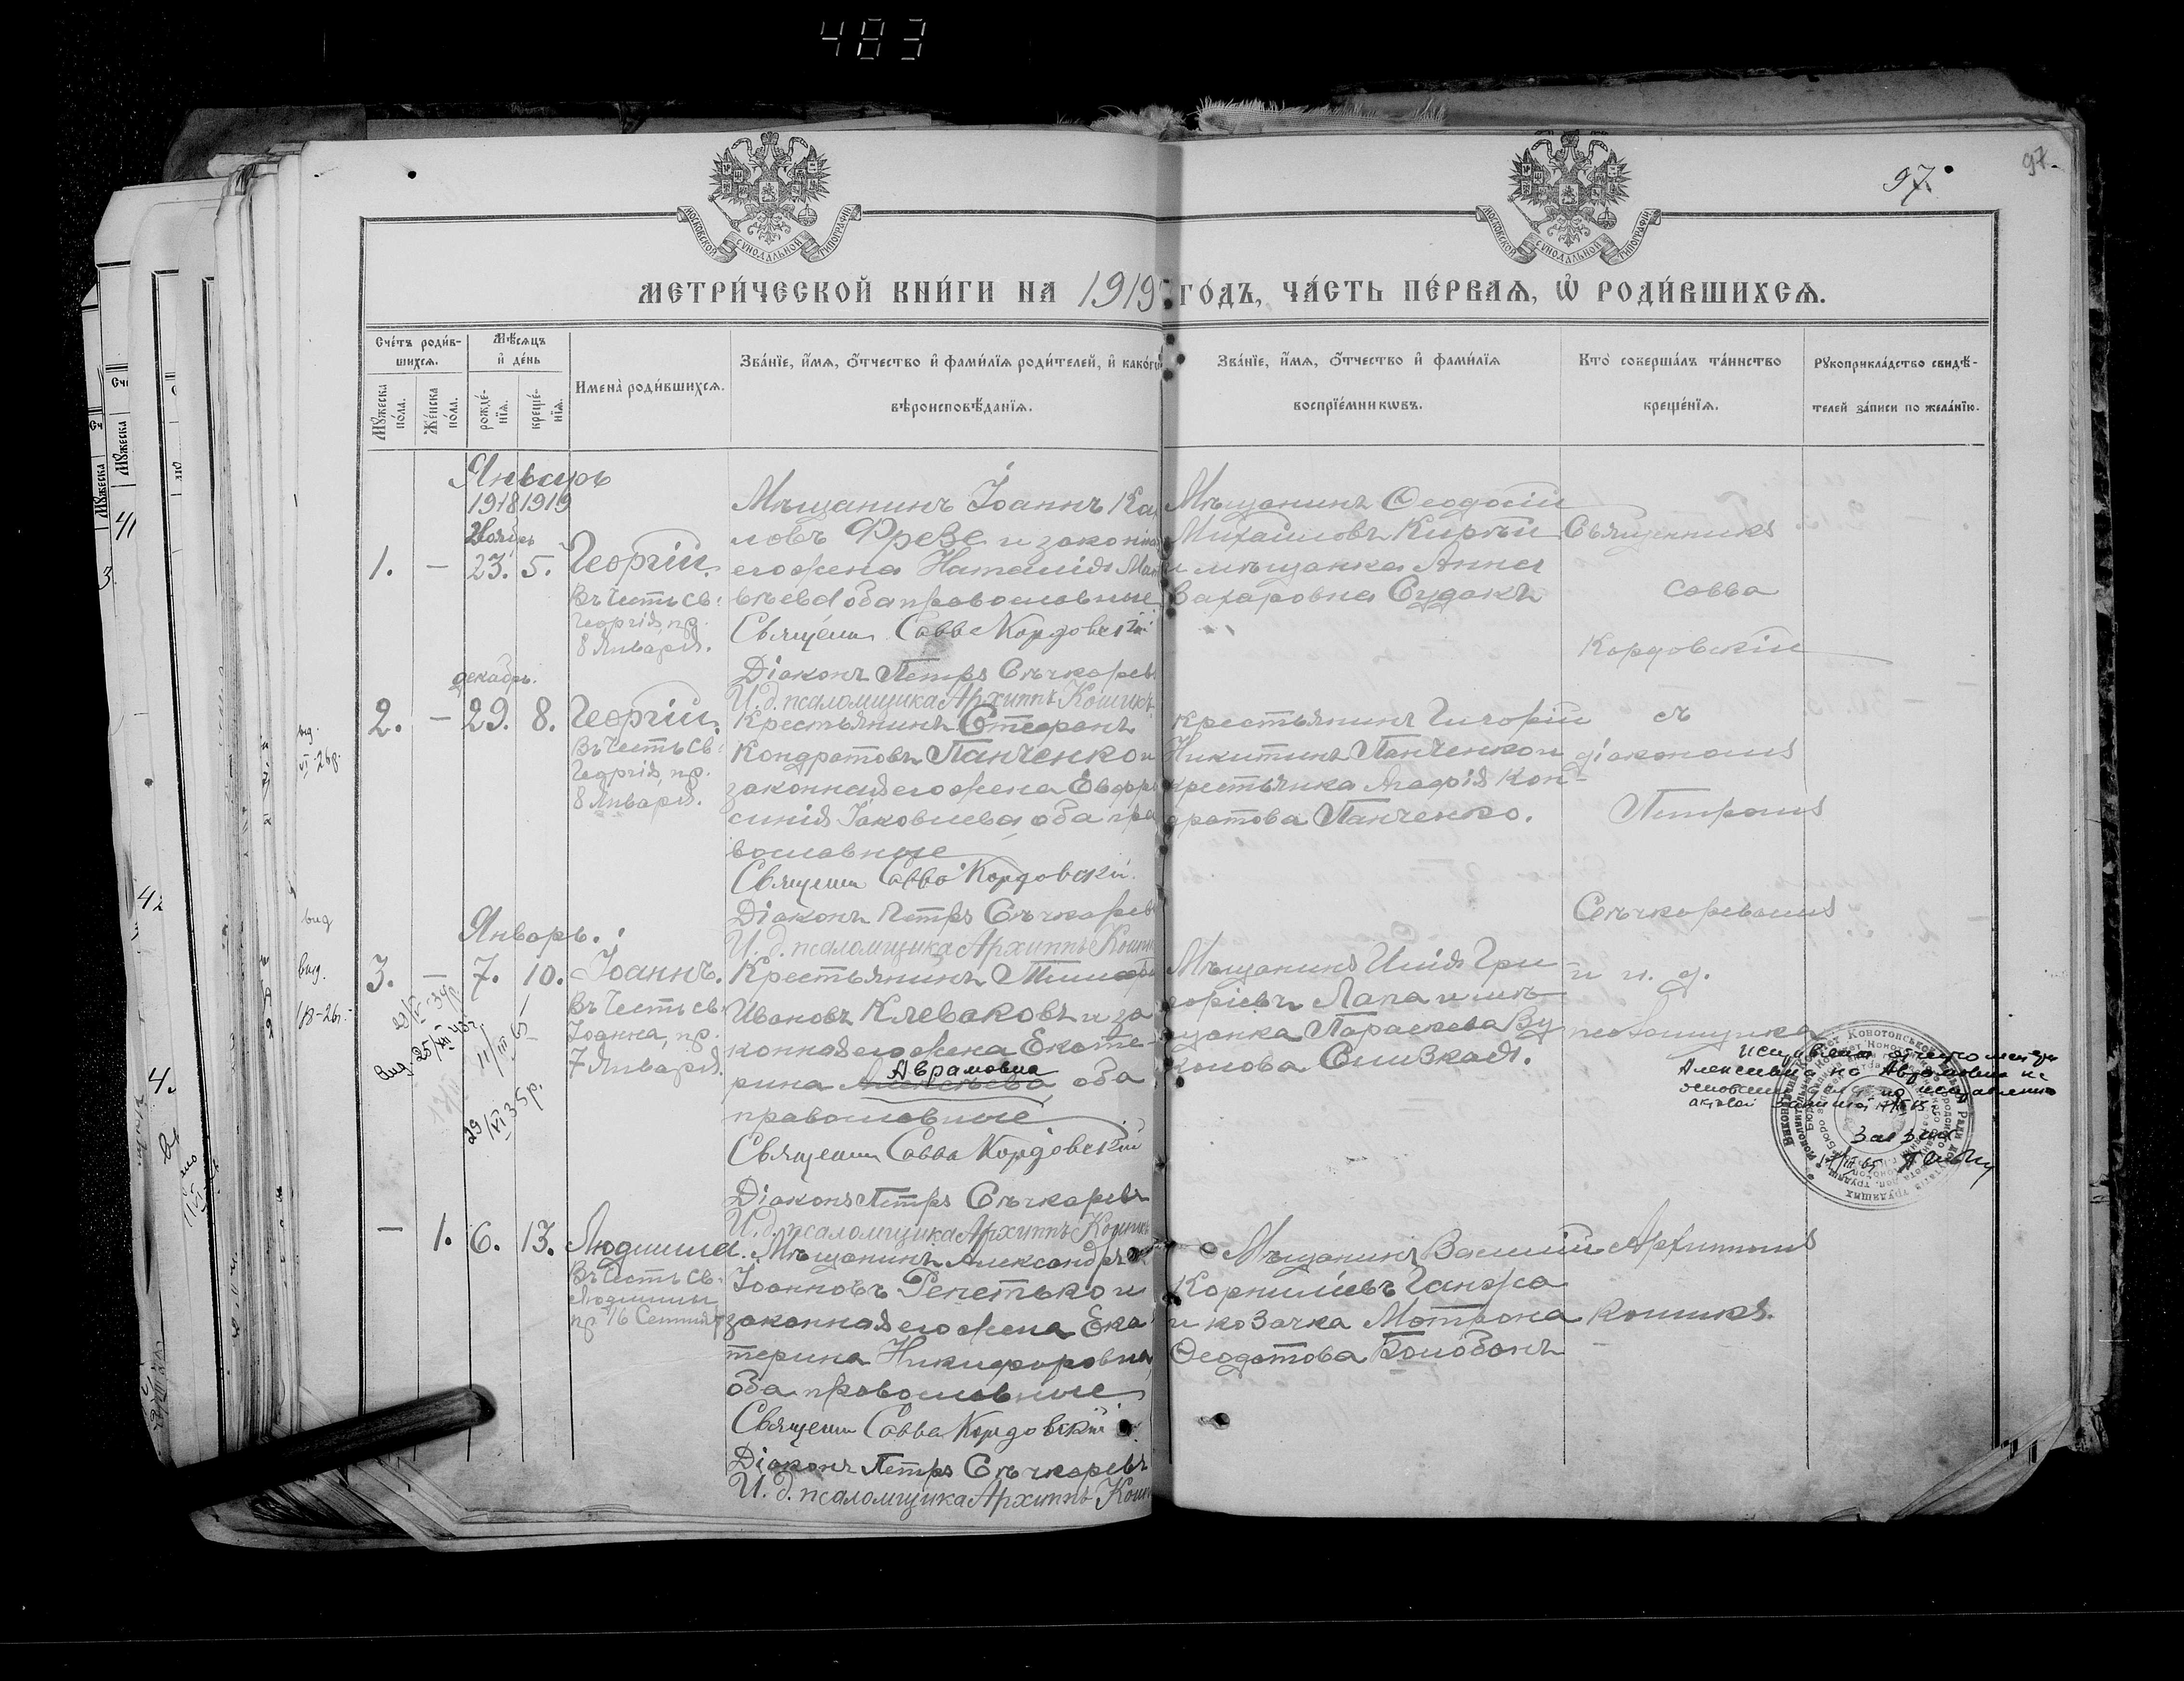 483
97.
97.
МОСКОВСКОЙ СѴНОДАЛЬНОЙ ТИПОГРАФІИ
МОСКОВСКОЙ СѴНОДАЛЬНОЙ ТИПОГРАФІИ
МЕТРИ́ЧЕСКОЙ КНИ́ГИ НА 1919 ГО́ДЪ, ЧА́СТЬ ПЕ́РВАЯ, Ѽ РОДИ́ВШИХСЯ.
Сче́тъ роди́в-
шихся.
Мѣ́сяцъ
и҆ де́нь
Мꙋ́жеска
по́ла.
Же́нска
по́ла.
рожде́-
нїя.
креще́-
нїя.
Имена̀ роди́вшихся.
Зва́нїе, и҆́мя, о҆́тчество и҆ фами́лїя роди́телей, и҆ како́гѡ
вѣроисповѣ́данїя.
Зва́нїе, и҆́мя, о҆́тчество и҆ фами́лїя
воспрїе́мникѡвъ.
Кто̀ соверша́лъ та́инство
креще́нїя.
Рꙋкоприкла́дство свидѣ́-
телей за́писи по жела́нїю.
Январь
1918 1919
Ноябрь
1. — 23. 5. Георгій.
Въ честь св.
Георгія, пр.
8 Января.
Мѣщанинъ Іоаннъ Кар
ловъ Фрезе и законная
его жена Наталія Мат
вѣева оба православные
Священ. Савва Кордовскій
Діаконъ Петръ Сѣчкаревъ
И. д. псаломщика Архиппъ Кошикъ
Мѣщанинъ Феодосій
Михаиловъ Кирѣй
и мѣщанка Анна
Захаровна Судакъ
Священникъ
Савва
Кордовскій
декабрь.
2. — 29. 8. Георгій.
Въ честь св.
Георгія, пр.
8 Января.
Крестьянинъ Стефанъ
Кондратовъ Панченко и
законная его жена Евфро
синія Іаковлева, оба пра
вославные
Священ. Савва Кордовскій.
Діаконъ Петръ Сѣчкаревъ
И. д. псаломщика Архиппъ Кошикъ
крестьянинъ Григорій
Никитинъ Панченко и
крестьянка Агафія Кон-
дратова Панченко.
съ
діакономъ
Петромъ
Сѣчкаревымъ
вид.
VI-26р.
вид
Январь.
3. — 7. 10. Іоаннъ.
Въ честь св.
Іоанна, пр.
7 Января.
Крестьянинъ Тимофей
Ивановъ Клеваковъ и за
конная его жена Екате-
Аврамовна
рина Алексѣева, оба
православные
Священ. Савва Кордовскій
Діаконъ Петръ Сѣчкаревъ
И. д. псаломщика Архиппъ Кошикъ
Мѣщанинъ Илія Гри
горіевъ Лапа и мѣ-
щанка Параскева Ву
колова Сливкая.
и и. д.
псаломщика
вид.
29/VI 35р.
Исправлено отчество матери
Алексеевна на Аврамовна на
основании
Зав. загс
— 1. 6. 13. Людмила.
Въ честь св.
Людмилы
пр. 16 Сентября
Мѣщанинъ Александръ
Іоанновъ Репетько и
законная его жена Ека
терина Никифоровна,
оба православные
Священ. Савва Кордовскій
Діаконъ Петръ Сѣчкаревъ
И. д. псаломщика Архиппъ Кошикъ
Мѣщанинъ Василій
Корниліевъ Ганжа
и козачка Матрона
Феодотова Колобокъ
Архиппомъ
Кошикъ.